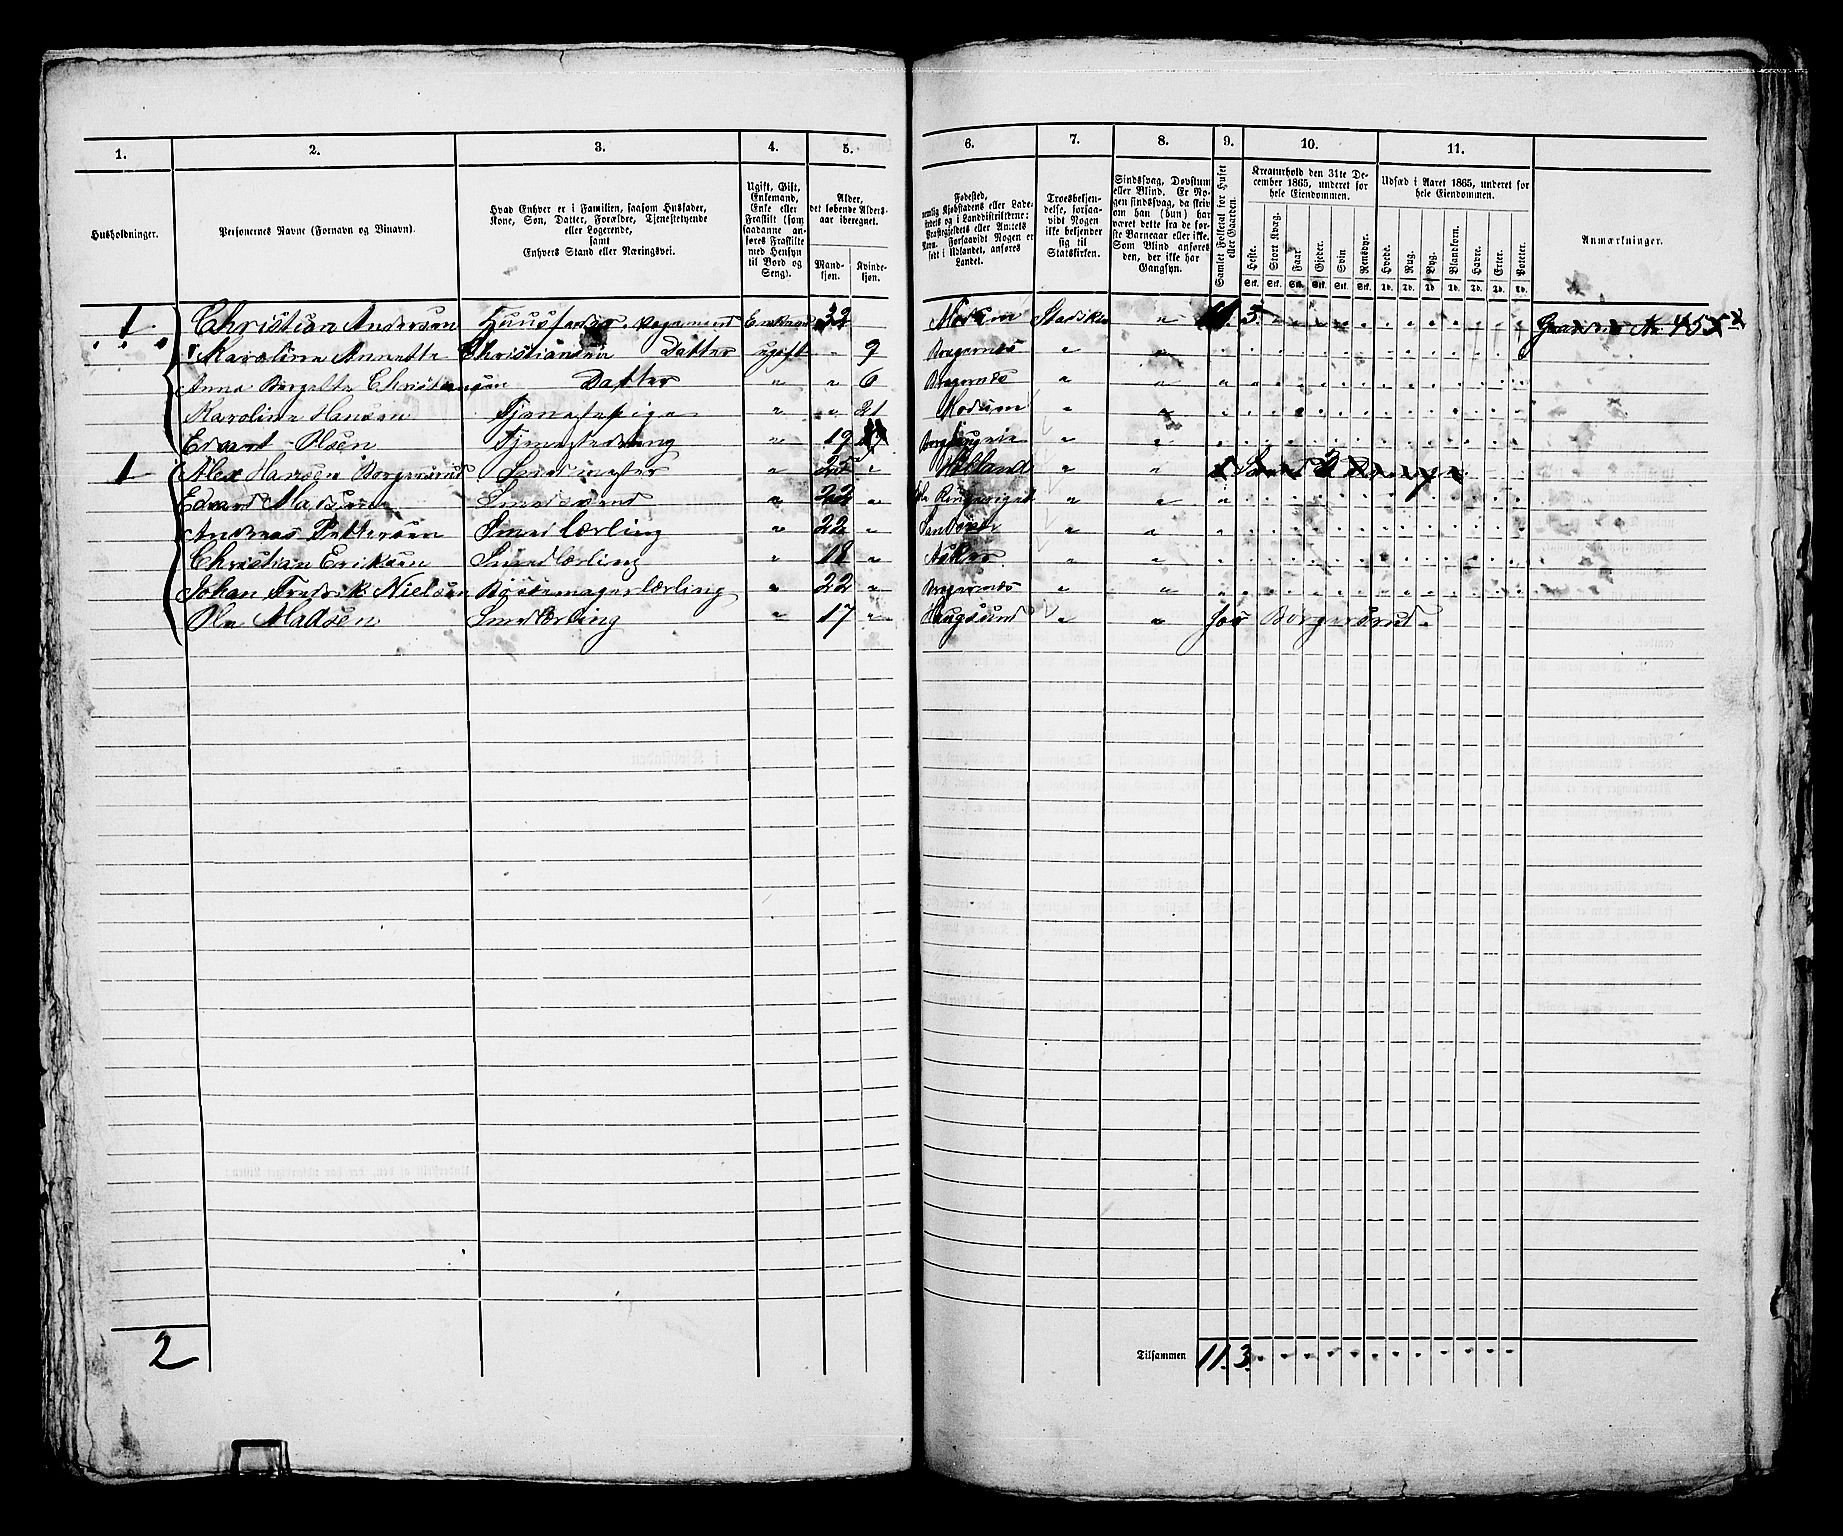 1. 2. 3. 4. 5. 6. 7. 8. 9. 10. 11.
Husholdninger.
Personernes Navne (Fornavn og Binavn).
Hvad Enhver er i Familien, saasom Husfader, Kone, Søn, Datter, Forældre, Tjenestetyende eller Logerende, samt Enhvers Stand eller Næringsvei.
Ugift, Gift, Enkemand, Enke eller Fraskilt (som saadanne anføres Fraskilte med Hensyn til Bord og Seng).
Alder, det løbende Alders-aar iberegnet.
Mand-kjøn. Kvinde-kjøn.
Fødested, nemlig Kjøbstadens eller Ladestedets og i Landdistrikterne: Præstegjeldets eller Amtets Navn. Forsaavidt Nogen er født i Udlandet, anføres Landet.
Troesbekjendelse, forsaavidt Nogen ikke bekjender sig til Statskirken.
Sindssvag, Døvstum eller Blind. Er Nogen sindssvag, da skriv om han (hun) har været dette fra de første Barneaar eller ikke. Som Blind anføres den, der ikke har Gangsyn.
Samlet Folketal for Huset eller Gaarden.
Kreaturhold den 31te December 1865, underet for hele Eiendommen.
Heste. Stort Kvæg. Faar. Gjeder. Svin. Rensdyr.
Stk. Stk. Stk. Stk. Stk. Stk.
Udsæd i Aaret 1865, underet for hele Eiendommen.
Hvede. Rug. Byg. Blandkorn. Havre. Erter. Poteter.
Td. Td. Td. Td. Td. Td. Td.
Anmærkninger.
1 Christian Andersen Huusfader. Vognmand Enkem 32 Modum Statskir " 11. 3.
" " " Karoline Annette Christiansen Datter ugift " 9 Bragernæs " "
Anna Bergette Christiansen Datter " " 6 Bragernæs " "
Karoline Hansen Tjenestepige " " 21 Modum " "
Edvart Olsen Tjenestedreng " 19 " "
1 Alex Hansen Borgersrud Smedmester " " " "
Edvard Madsen Smedsvend " 22 " " "
Andreas Pettersen Smed Lærling " 22 " " "
Christian Eriksen Smedlærling " 18 " Asker " "
Johan Fredrik Nielsen Bøssemagerlærling " 22 " Bragernæs " "
Ole Madsen Smedlærling " 17 " Haugsund " " for Borgersrud.
2
Tilsammen 11. 3.